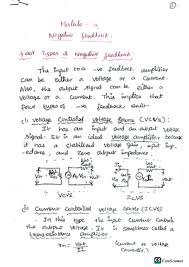 ①
Module :-
Negative feedback.
Four Types of Negative feedback
The input to a -ve feedback amplifier
can be either a voltage or a current.
Also, the output signal can be either a
voltage or a current. This implies that
four types of -ve feedback exist.
i) Voltage Controlled voltage Source (VCVS):
It has an input and an output voltage
signal. It is an called voltage amplifier because
it has a stabilized voltage gain, input imp-
edance, and zero output impedance
VCVS
ICVS
ii) Current controlled voltage source (ICVS)
In this type the input current controls
the output voltage. It is sometimes called a
transresistance amplifier
(current to voltage
converter)
CamScanner